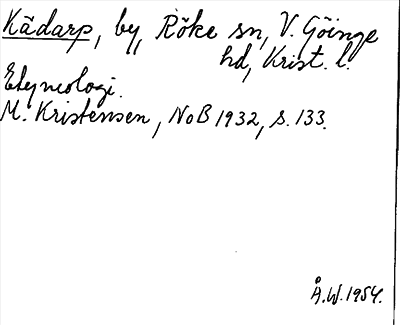 Kädarp, by, Röke sn, V. Göinge
hd, Krist. l.
Etymologi.
M. Kristensen, NoB 1932, s. 133.
Å.W. 1954.